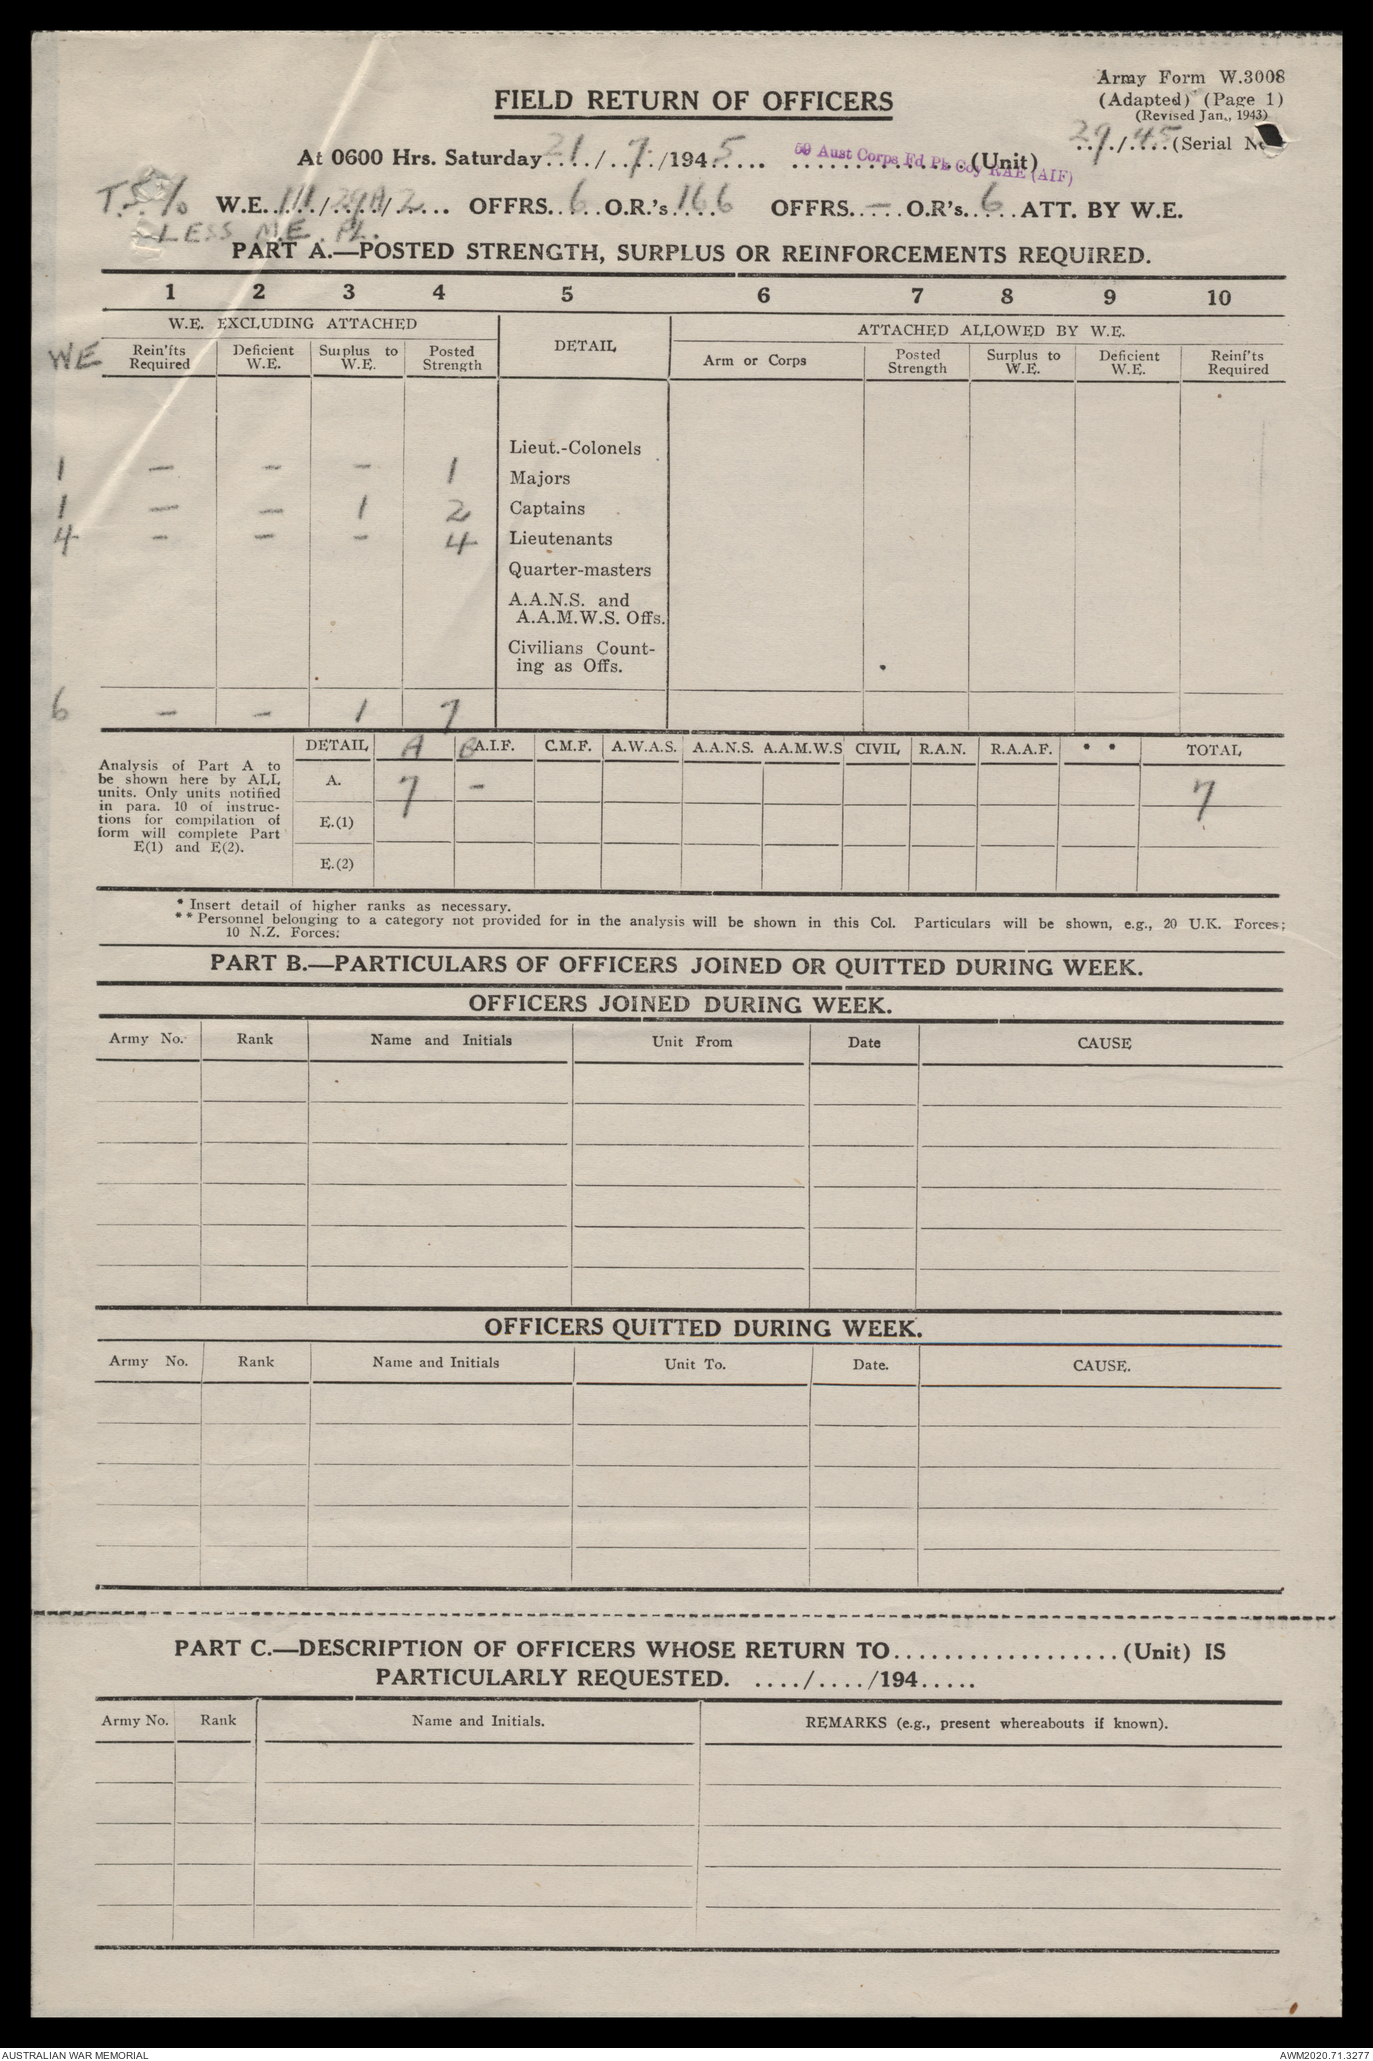 Army Form W.3008
FIELD RETURN OF OFFICERS
(Adapted) (Page 1)
(Revised Jan., 1943)
At 0600 Hrs. Saturday 21/7/1945 59 Aust Corps Fd Pk Coy RAE (AIF) (Unit) 29/45 (Serial No
W.E. 111/29A/2 OFFRS. 6 O.R.'s 166 OFFRS. — O.R's. 6 ATT. BY W.E.
LESS M.E. PL.
PART A.—POSTED STRENGTH, SURPLUS OR REINFORCEMENTS REQUIRED.
1 2 3 4 5 6 7 8 9 10
W.E. EXCLUDING ATTACHED DETAIL ATTACHED ALLOWED BY W.E.
WE Rein'fts Required Deficient W.E. Surplus to W.E. Posted Strength Arm or Corps Posted Strength Surplus to W.E. Deficient W.E. Reinf'ts Required
Lieut.-Colonels
1 — — — 1 Majors
1 — — 1 2 Captains
4 — — — 4 Lieutenants
Quarter-masters
A.A.N.S. and
A.A.M.W.S. Offs.
Civilians Count-
ing as Offs.
6 — — 1 7
DETAIL A B A.I.F. C.M.F. A.W.A.S. A.A.N.S. A.A.M.W.S CIVIL R.A.N. R.A.A.F. * * TOTAL
Analysis of Part A to
be shown here by ALL
units. Only units notified
in para. 10 of instruc-
tions for compilation of
form will complete Part
E(1) and E(2).
A. 7 - 7
E.(1)
E.(2)
* Insert detail of higher ranks as necessary.
* * Personnel belonging to a category not provided for in the analysis will be shown in this Col. Particulars will be shown, e.g., 20 U.K. Forces;
10 N.Z. Forces:
PART B.—PARTICULARS OF OFFICERS JOINED OR QUITTED DURING WEEK.
OFFICERS JOINED DURING WEEK.
Army No. Rank Name and Initials Unit From Date CAUSE
OFFICERS QUITTED DURING WEEK.
Army No. Rank Name and Initials Unit To. Date. CAUSE.
PART C.—DESCRIPTION OF OFFICERS WHOSE RETURN TO.................. (Unit) IS
PARTICULARLY REQUESTED. ..../..../194.....
Army No. Rank Name and Initials. REMARKS (e.g., present whereabouts if known).
AUSTRALIAN WAR MEMORIAL
AWM2020.71.3277